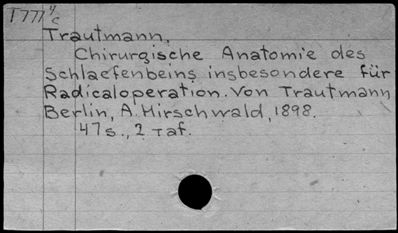 T777 y/c
Trautmann,
Chirurgische Anatomie des
Schlaefenbeins insbesondere für
Radicaloperation. Von Trautmann
Berlin, A. Hirschwald, 1898.
47 s., 2 Taf.